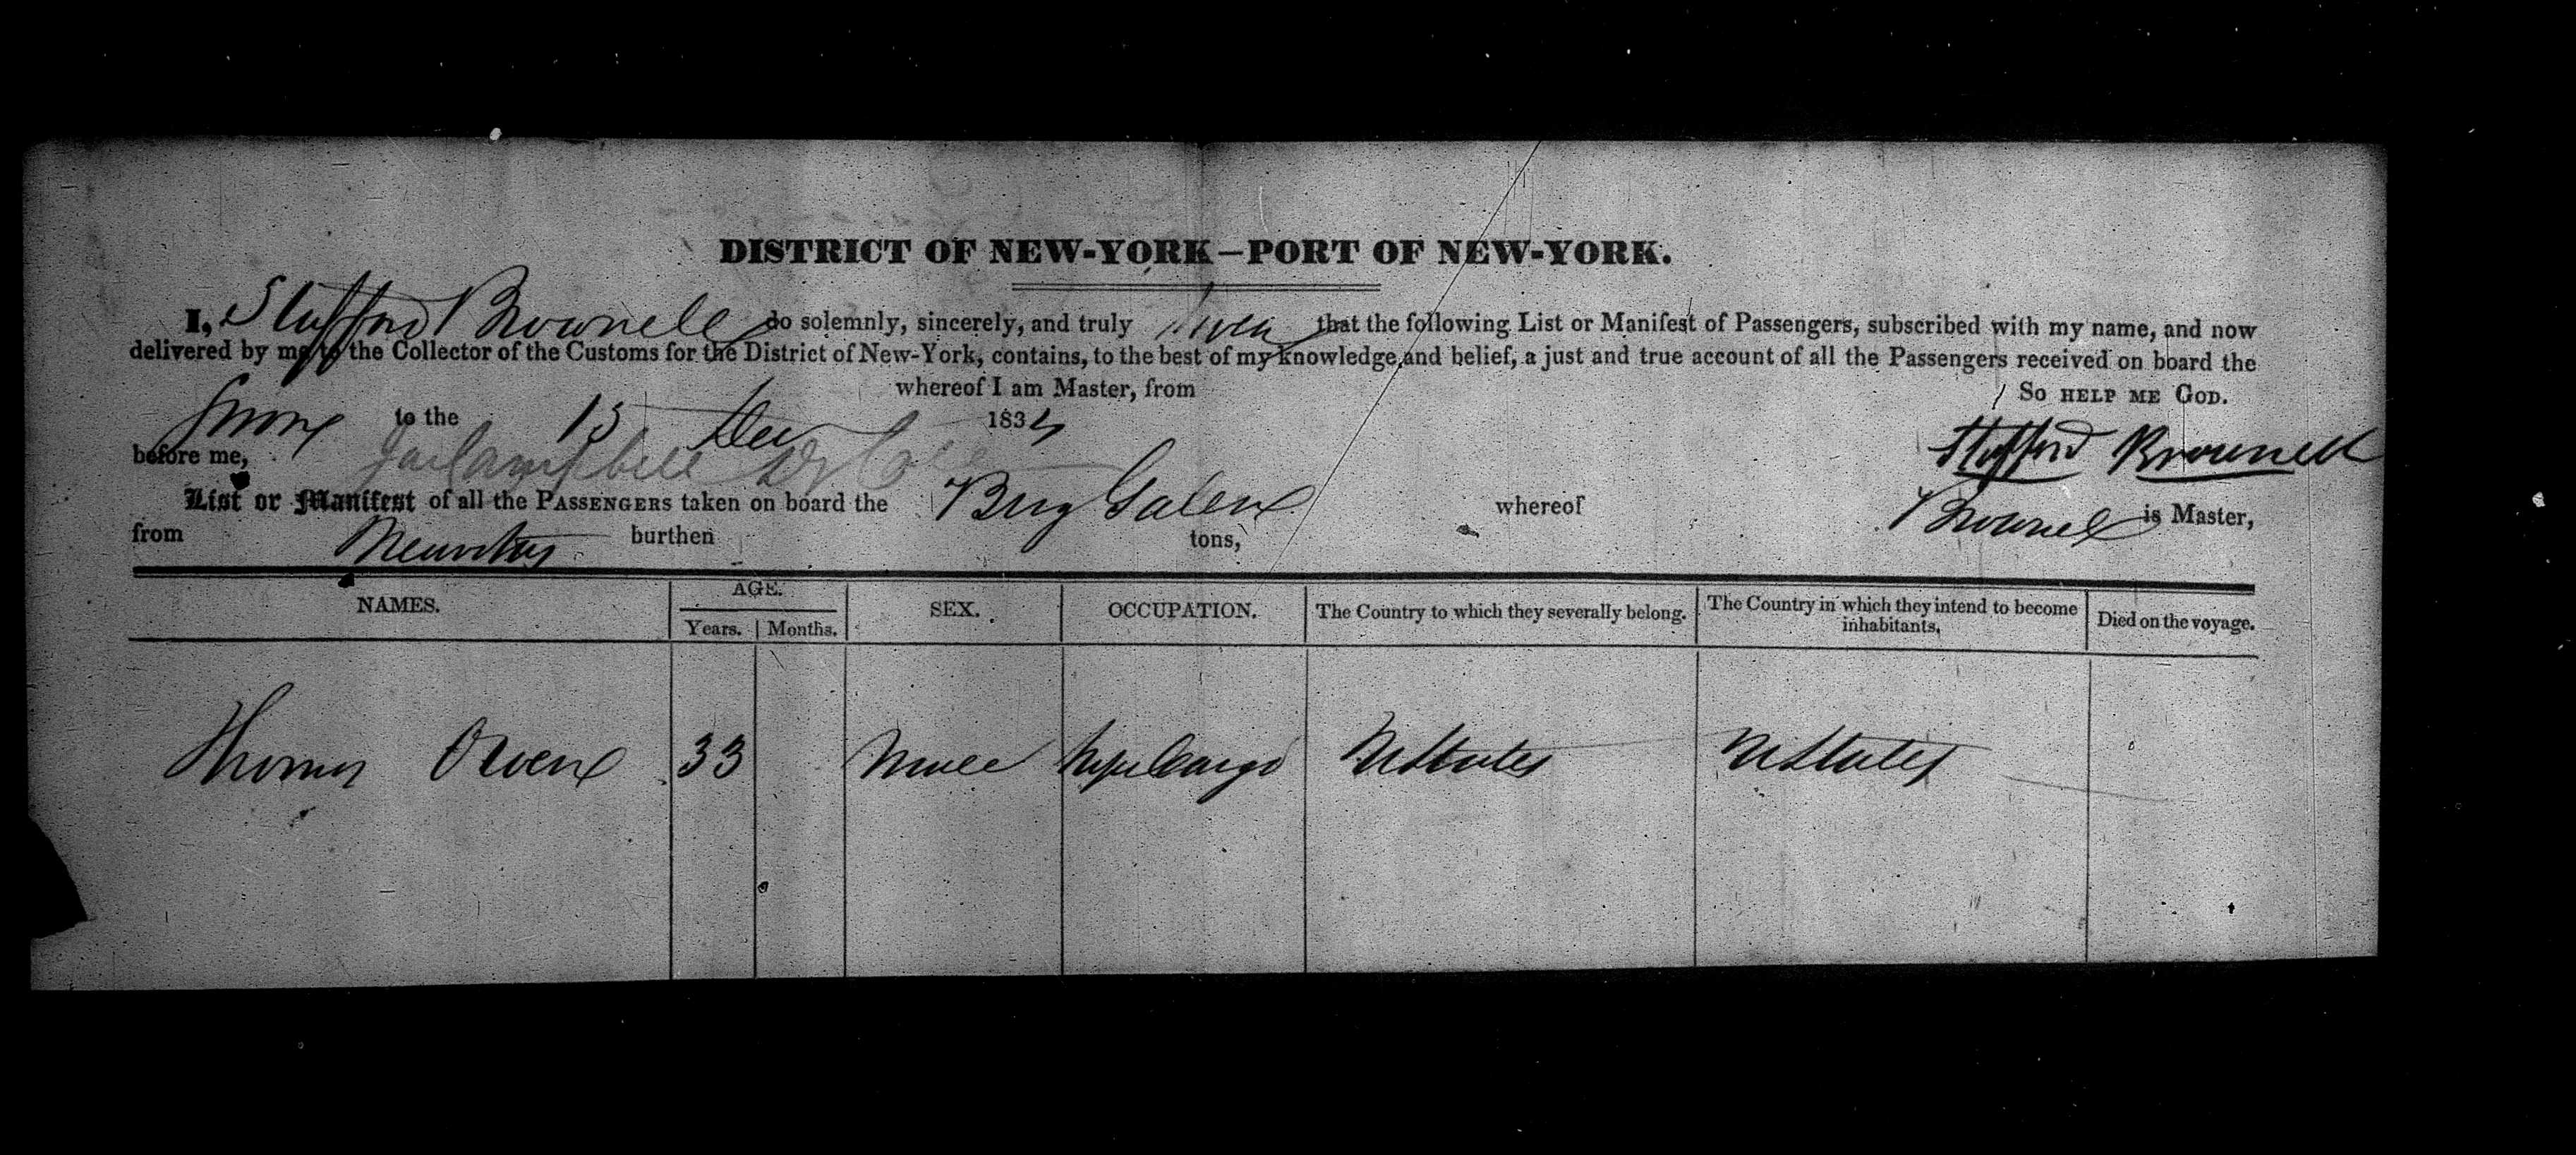 DISTRICT OF NEW-YORK—PORT OF NEW-YORK.
I, Stafford Brownell do solemnly, sincerely, and truly swear that the following List or Manifest of Passengers, subscribed with my name, and now
delivered by me to the Collector of the Customs for the District of New-York, contains, to the best of my knowledge and belief, a just and true account of all the Passengers received on board the
whereof I am Master, from
So help me God.
Sworn to the 15 Dec 1834
Stafford Brownell
before me, Jas Campbell
List or Manifest of all the Passengers taken on board the Brig Galen whereof Brownel is Master,
from burthen tons,
NAMES. AGE. SEX. OCCUPATION. The Country to which they severally belong. The Country in which they intend to become inhabitants, Died on the voyage.
Years. Months.
Thomas Owen 33 Male Supr Cargo U States U States